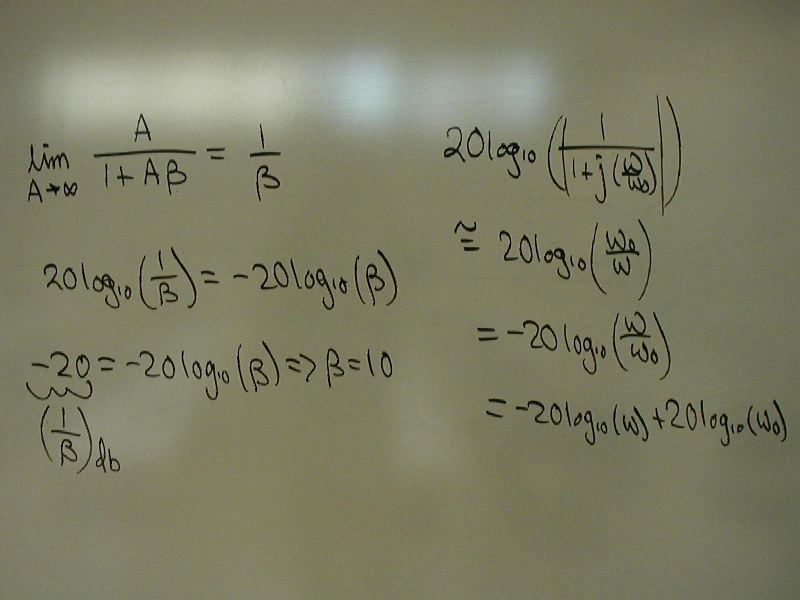 lim A→∞ A / (1 + Aβ) = 1/β
20log₁₀(1/β) = -20log₁₀(β)
-20 = -20log₁₀(β) => β = 10
(1/β)db
20log₁₀(|1 / (1 + j(ω/ω₀))|)
≅ 20log₁₀(ω₀/ω)
= -20log₁₀(ω/ω₀)
= -20log₁₀(ω) + 20log₁₀(ω₀)